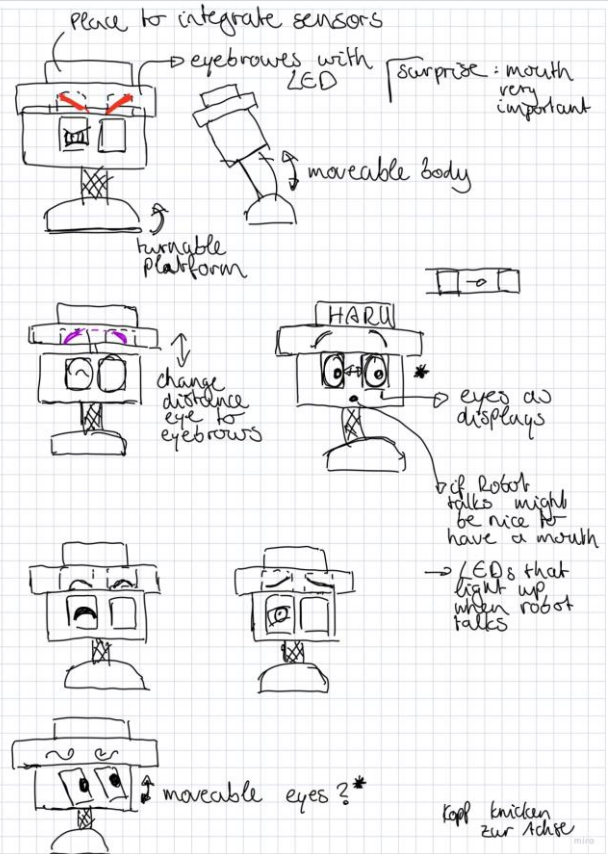 place to integrate sensors
eyebrowes with
LED
surprise : mouth
very
important
moveable body
turnable
platform
change
distance
eye to
eyebrows
HARU
*
eyes as
displays
if Robot
talks might
be nice to
have a mouth
→ LEDs that
light up
when robot
talks
moveable eyes ? *
Kopf knicken
zur Achse
miro